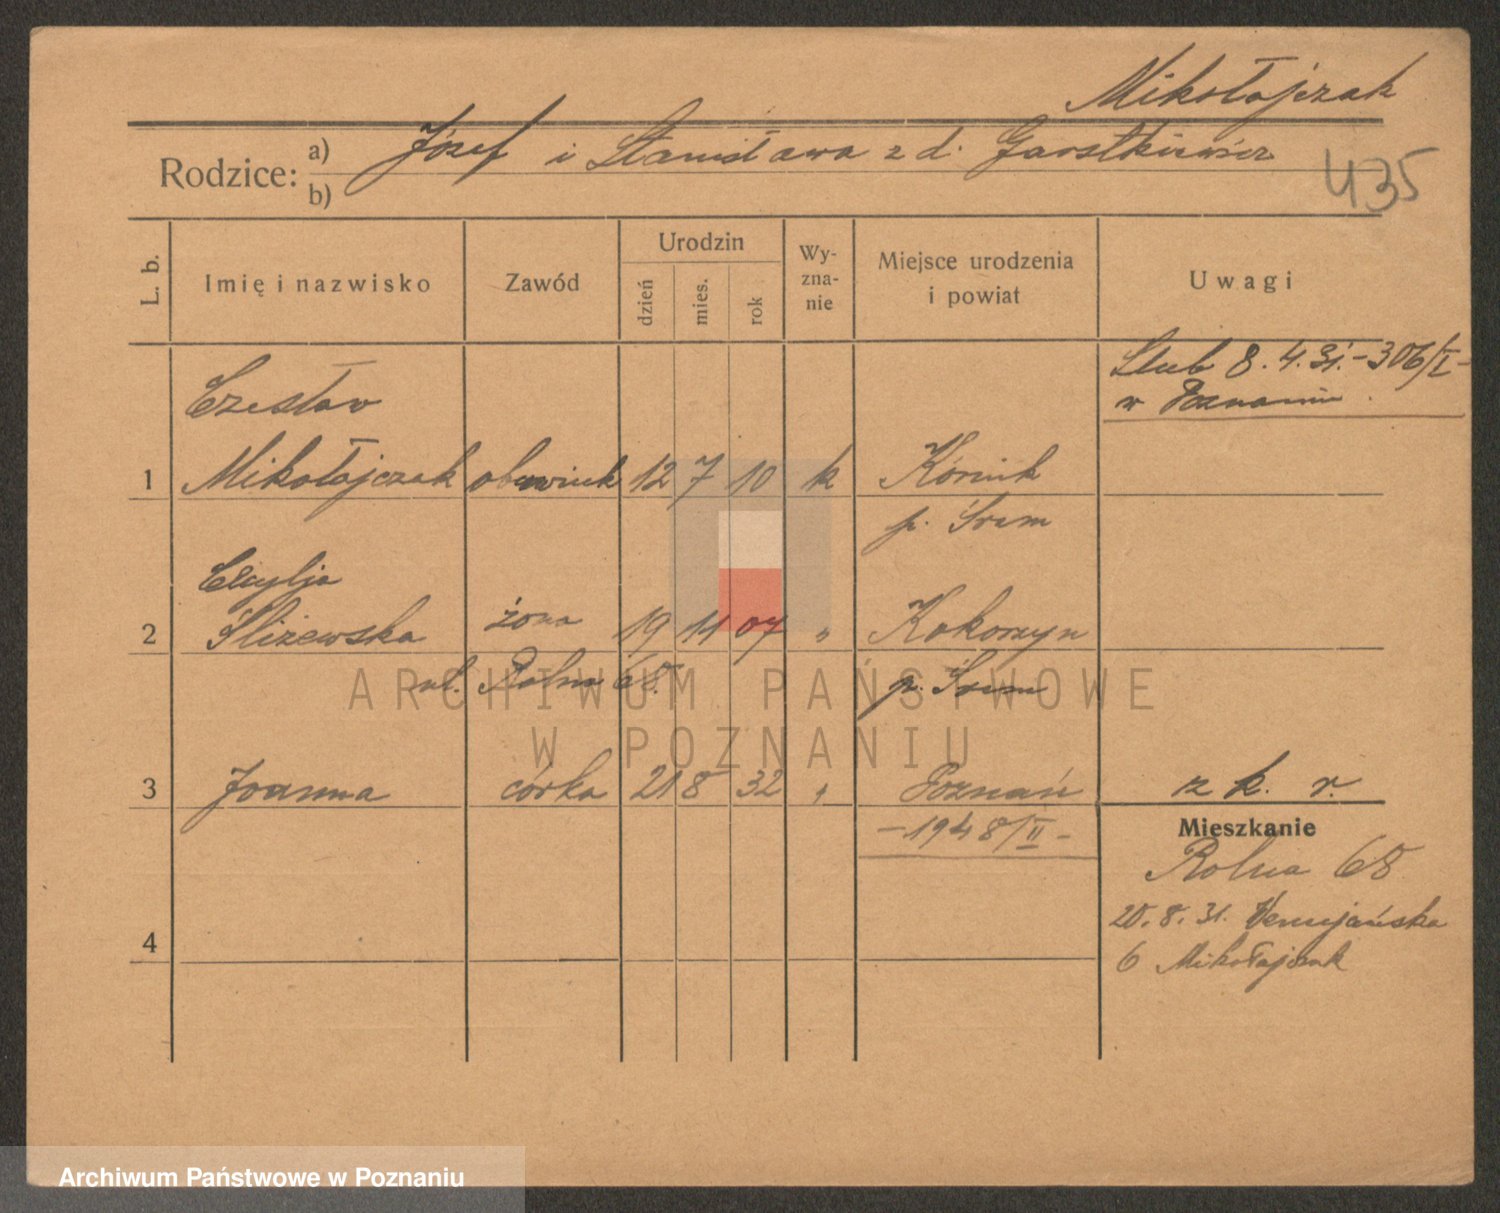 Mikołajczak
Rodzice: a) Józef i Stanisława z d. Garstkiewicz
b)
435
L. b.
Imię i nazwisko
Zawód
Urodzin
dzień
mies.
rok
Wy-
zna-
nie
Miejsce urodzenia
i powiat
Uwagi
Ślub 8.4.31.-306/I-
w Poznaniu.
Czesław
1 Mikołajczak obuwnik 12 7 10 k Kórnik
p. Śrem
Cecylja
2 Śliżewska żona 19 11 07 " Kokorzyn
ul. Rolna 68. p. Śrem
3 Joanna córka 21 8 32 " Poznań z k. r.
-1948/II-
Mieszkanie
Rolna 68
20.8.31.
4
6 Mikołajczak
ARCHIWUM PAŃSTWOWE
W POZNANIU
Archiwum Państwowe w Poznaniu